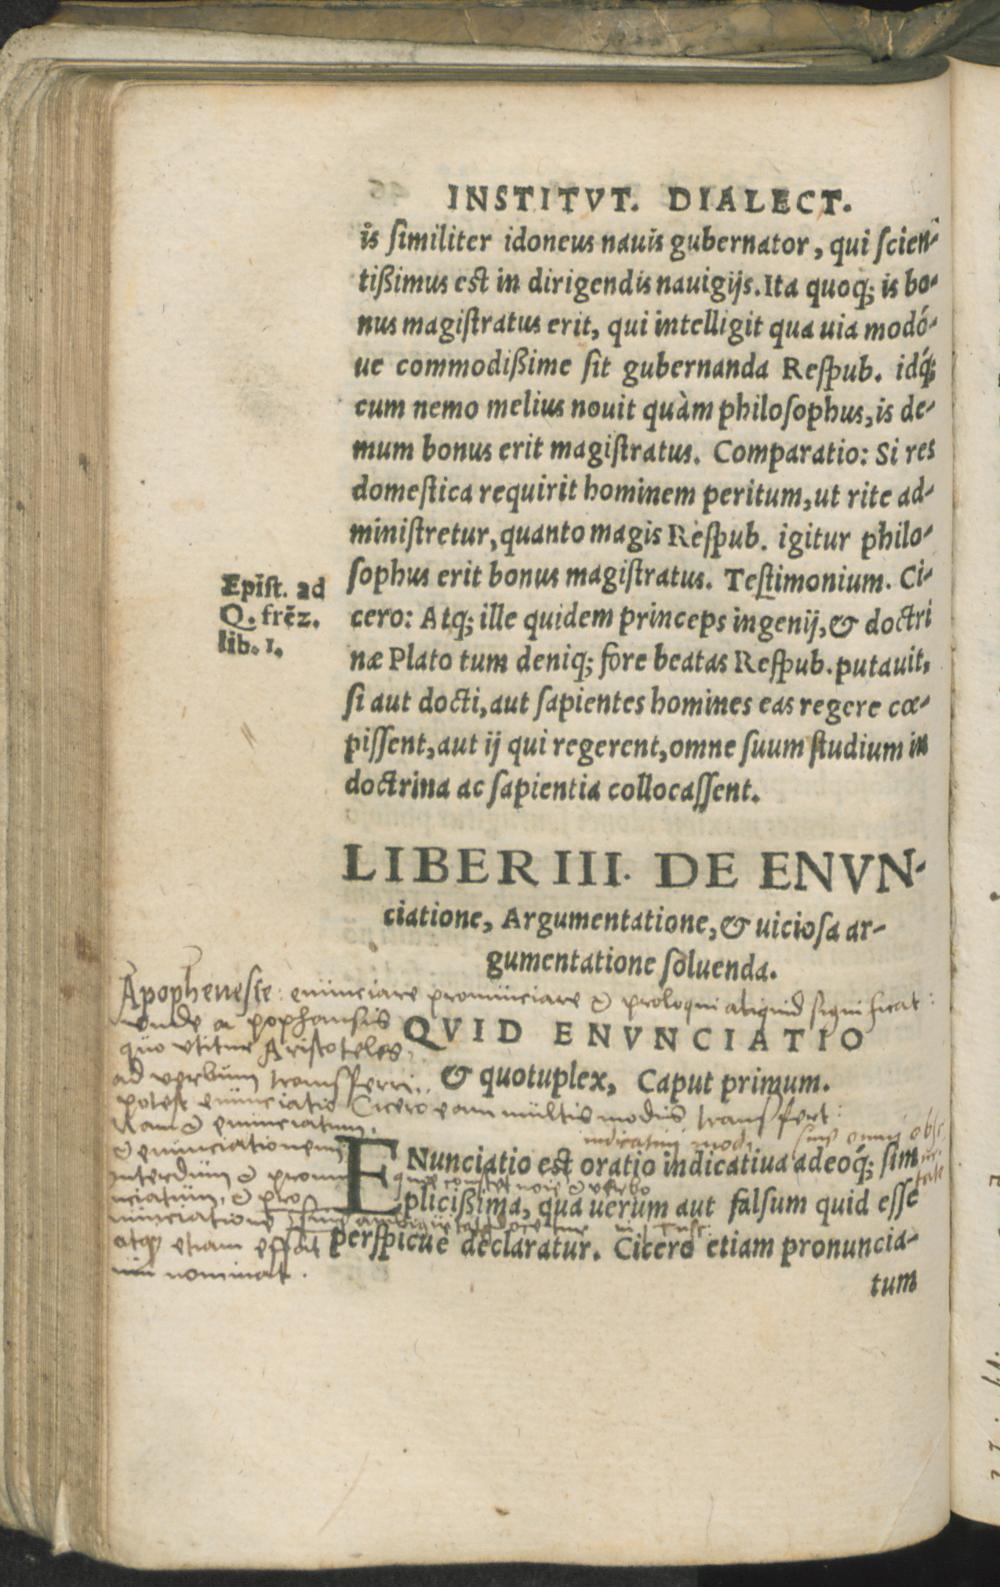 INSTITVT. DIALECT.
is similiter idoneus nauis gubernator, qui scien-
tißimus est in dirigendis nauigijs. Ita quoq; is bo-
nus magistratus erit, qui intelligit qua uia modó-
ue commodißime sit gubernanda Respub. idq́;
cum nemo melius nouit quàm philosophus, is de-
mum bonus erit magistratus. Comparatio: Si res
domestica requirit hominem peritum, ut rite ad-
ministretur, quanto magis Respub. igitur philo-
sophus erit bonus magistratus. Testimonium. Ci-
cero: Atq; ille quidem princeps ingenij, & doctri
næ Plato tum deniq; fore beatas Respub. putauit,
si aut docti, aut sapientes homines eas regere cœ-
pissent, aut ij qui regerent, omne suum studium in
doctrina ac sapientia collocassent.
Epist. ad
Q. frēz.
lib. 1.
LIBER III. DE ENVN-
ciatione, Argumentatione, & uiciosa ar-
gumentatione soluenda.
enunciare pronunciare & proloqui aliquid significat:
unde apophansis
quo utitur Aristoteles,
ad verbum transferri
potest enunciatio Cicero eam multis modis transfert:
Nam & enunciatum,
& enunciationem
interdum & pronun
ciatum, & pro
nunciatione
atq; etiam effat
um nominat.
QVID ENVNCIATIO
& quotuplex, Caput primum.
indicatiui modi
ENunciatio est oratio indicatiua adeoq́; sim
quae constet noīe & verbo
plicißima, qua uerum aut falsum quid esse
perspicue declaratur. Cicero etiam pronuncia-
tum